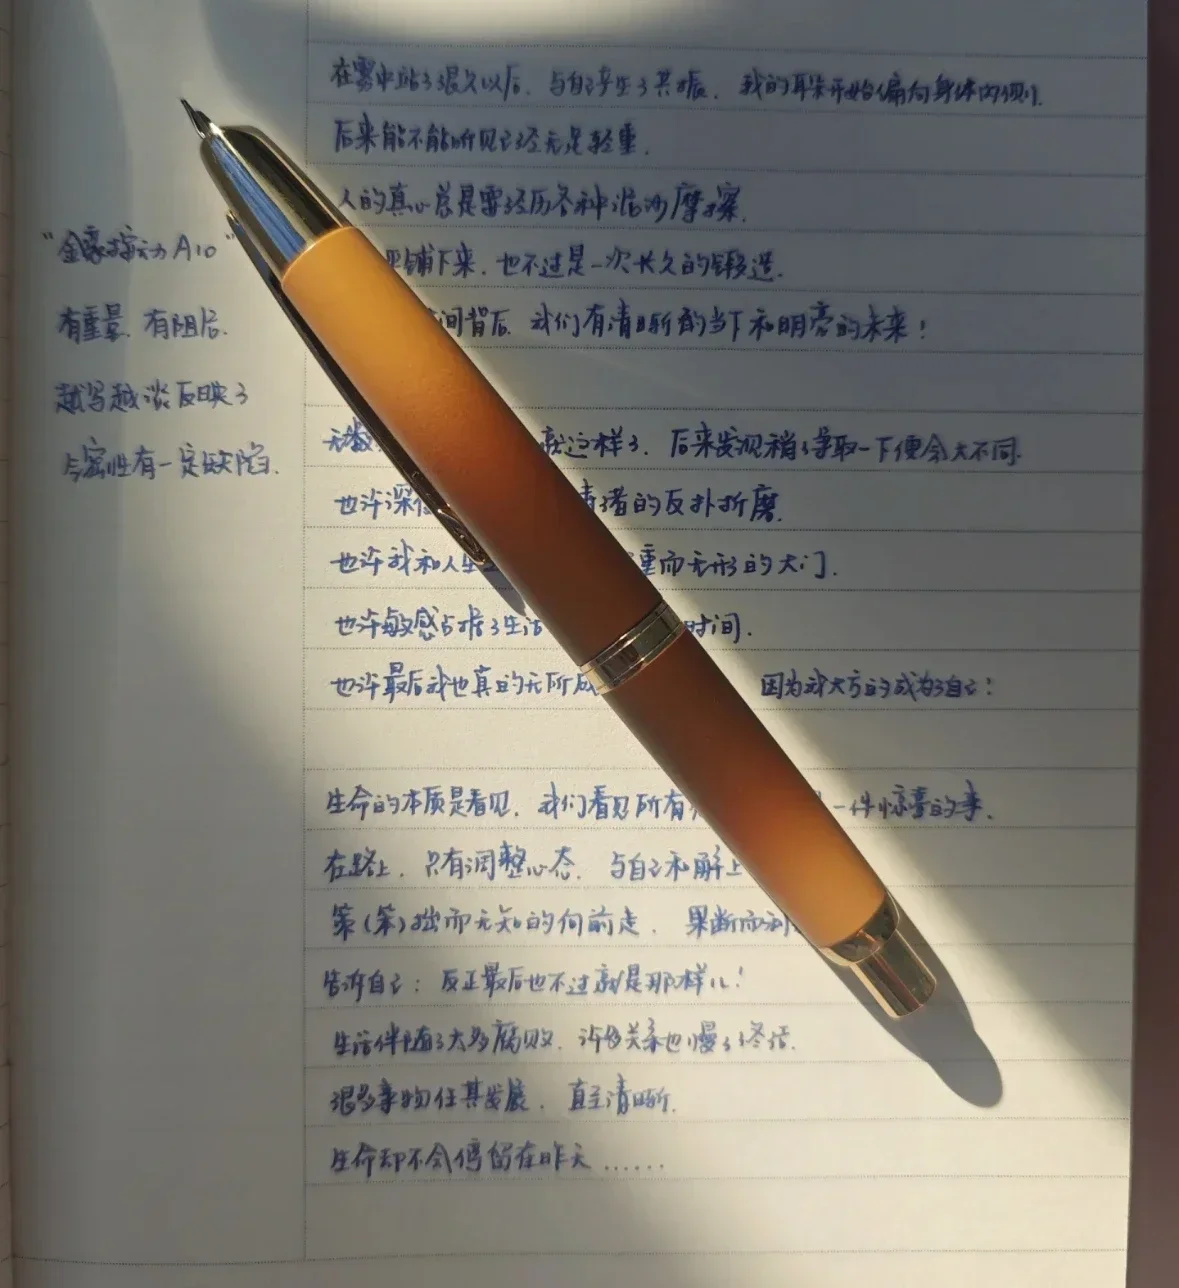 "金豪按动A10"
有重量,有阻尼.
越写越淡反映了
气密性有一定缺陷.
在雾中站了很久以后,与自己产生了共振,我的耳朵开始偏向身体内侧.
后来能不能听见已经无足轻重.
人的真心总是需经历各种泥沙摩擦.
铺下来,也不过是一次长久的锻造.
间背后,我们有清晰的当下和明亮的未来!
无数 就这样了,后来发现稍争取一下便会大不同.
也许深 绪的反扑折磨.
也许我和人生 重而无形的大门.
也许敏感占据了生活 时间.
也许最后我也真的无所成 因为我大方的成为了自己!
生命的本质是看见,我们看见所有 一件惊喜的事.
在路上,只有调整心态,与自己和解上
策(笨)拙而无知的向前走,果断而利
告诉自己:反正最后也不过就是那样儿!
生活伴随了太多腐败,许多关系也慢了终结.
很多事物任其发展,直至清晰.
生命却不会停留在昨天......